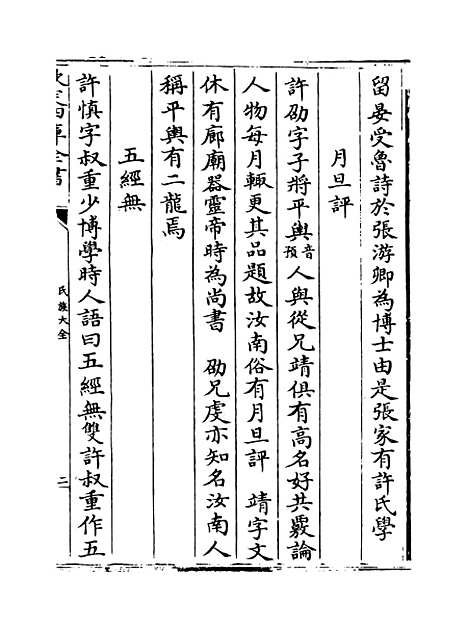 留晏受魯詩於張游卿為博士由是張家有許氏學
月旦評
許劭字子將平輿音預人與從兄靖俱有高名好共覈論
人物每月輒更其品題故汝南俗有月旦評 靖字文
休有廊廟器靈帝時為尚書 劭兄虔亦知名汝南人
稱平輿有二龍焉
五經無
許慎字叔重少博學時人語曰五經無雙許叔重作五
氏族大全
二